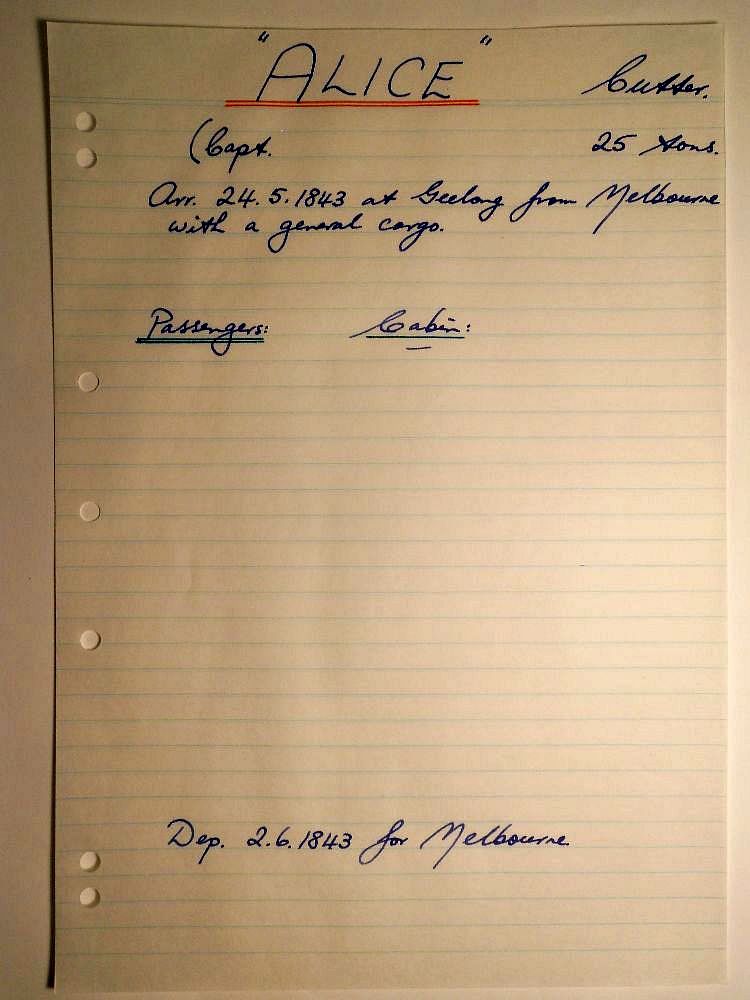 "ALICE" Cutter.
(Capt. 25 tons.
Arr. 24.5.1843 at Geelong from Melbourne
with a general cargo.
Passengers: Cabin:
Dep. 2.6.1843 for Melbourne.